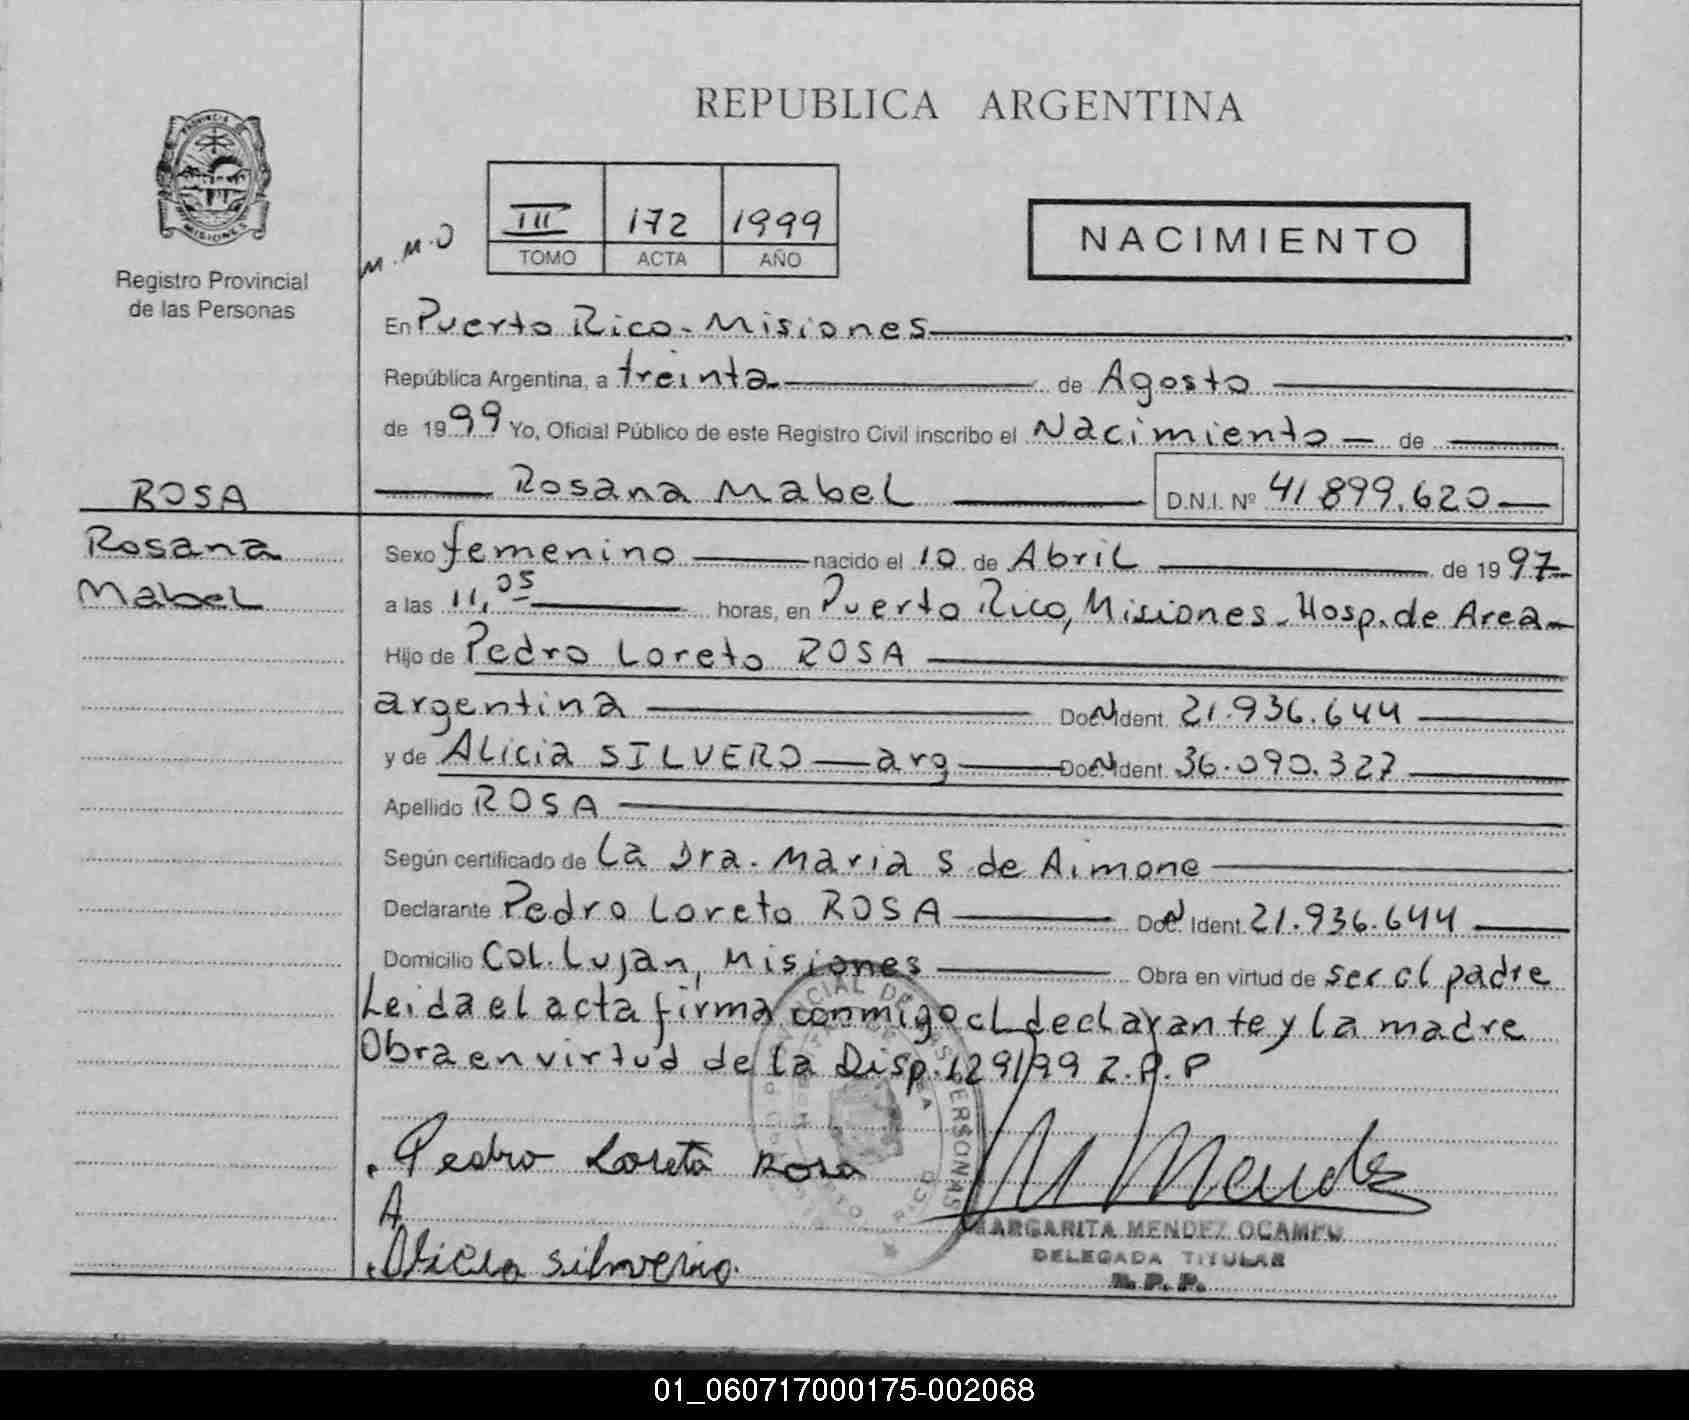 REPUBLICA ARGENTINA
PROVINCIA DE
MISIONES
Registro Provincial
de las Personas
M.M.O
III 172 1999
TOMO ACTA AÑO
NACIMIENTO
En Puerto Rico - Misiones
República Argentina, a treinta de Agosto
de 1999 Yo, Oficial Público de este Registro Civil inscribo el Nacimiento de
Rosana Mabel D.N.I. Nº 41.899.620
ROSA
Rosana
Mabel
Sexo femenino nacido el 10 de Abril de 1997
a las 11,05 horas, en Puerto Rico, Misiones - Hosp. de Area
Hijo de Pedro Loreto ROSA
argentina Doc N Ident. 21.936.644
y de Alicia SILVERO arg Doc N Ident. 36.090.327
Apellido ROSA
Según certificado de La Dra. Maria S de Aimone
Declarante Pedro Loreto ROSA Doc. N Ident. 21.936.644
Domicilio Col. Lujan, Misiones Obra en virtud de ser el padre
Leida el acta firma conmigo el declarante y la madre
Obra en virtud de la Disp. 129/99 R.P.P
Pedro Loreto Rosa
M Mendez
A
MARGARITA MENDEZ OCAMPO
Alicia Silverio.
DELEGADA TITULAR
R.P.P.
01_060717000175-002068